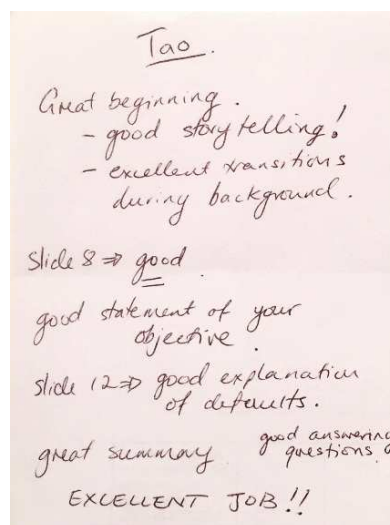 Tao.
Great beginning.
- good story telling!
- excellent transitions
during background.
Slide 8 ⇒ good.
good statement of your
objective.
slide 12 ⇒ good explanation
of defaults.
great summary
good answering
questions
EXCELLENT JOB!!